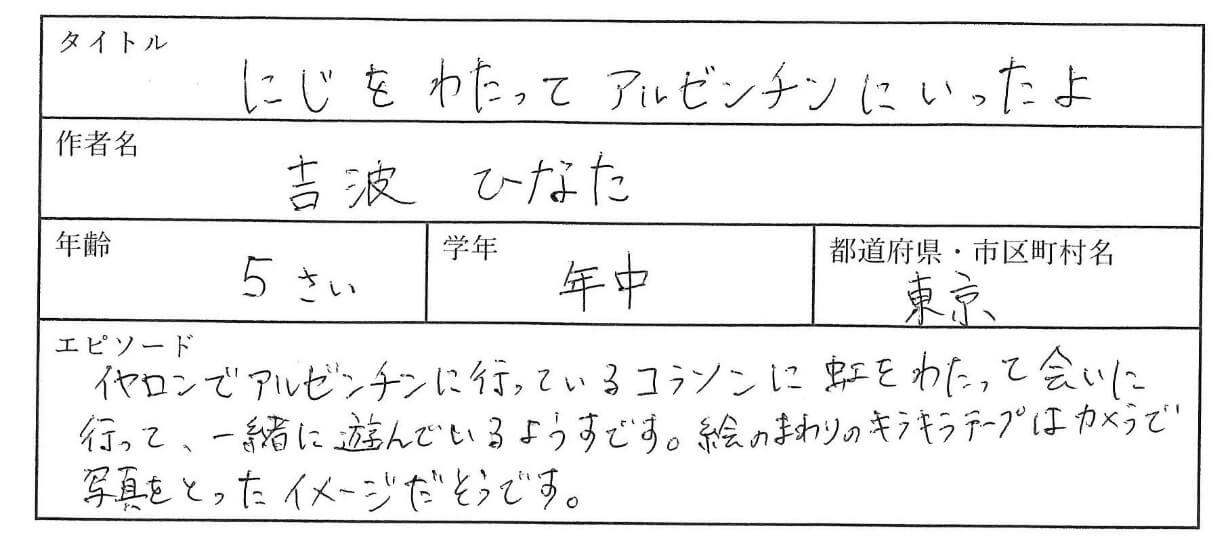 タイトル
にじを わたって アルゼンチンにいったよ
作者名
吉波 ひなた
年齢
5さい
学年
年中
都道府県・市区町村名
東京
エピソード
イヤロンでアルゼンチンに行っているコラソンに虹をわたって会いに
行って、一緒に遊んでいるようすです。絵のまわりのキラキラテープはカメラで
写真をとったイメージだそうです。